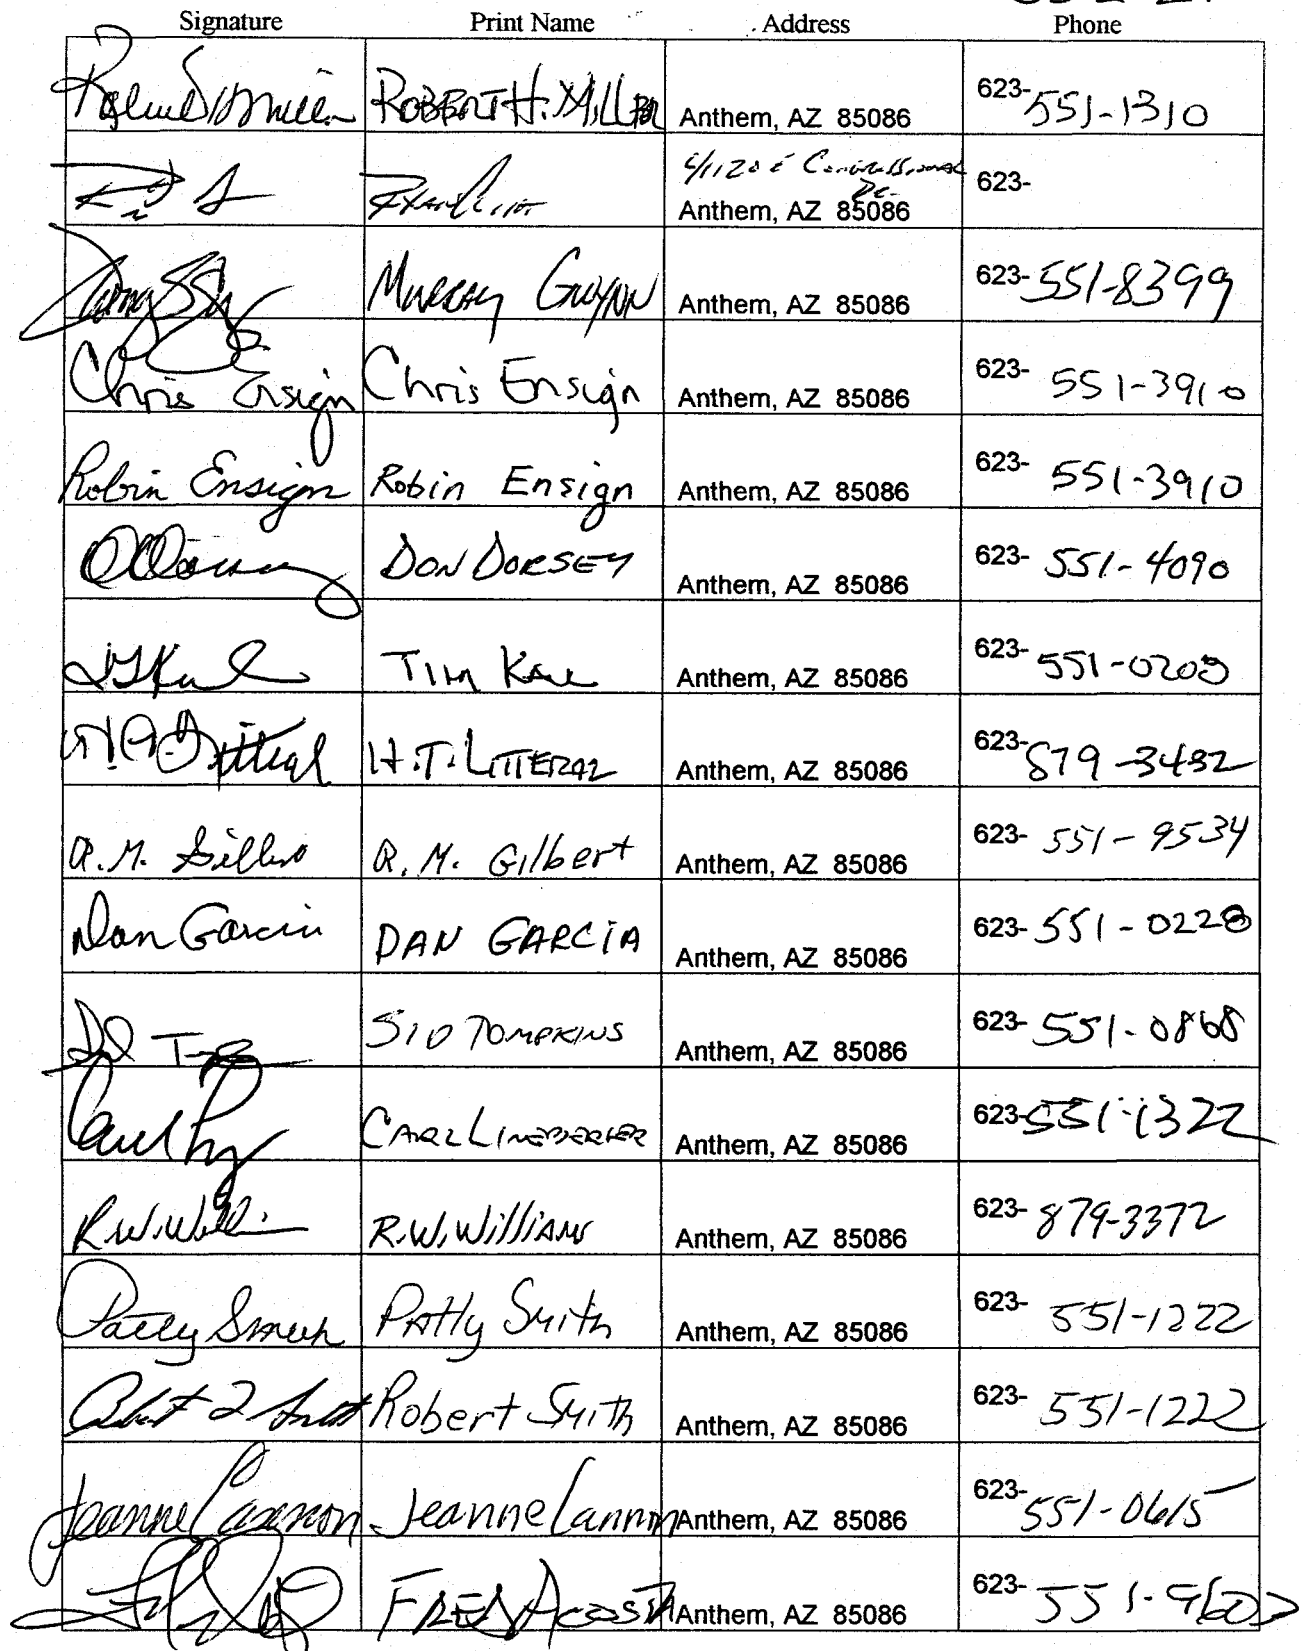 Signature Print Name Address Phone
Robert H. Miller ROBERT H. MILLER Anthem, AZ 85086 623-551-1310
41120 E Congressional Dr.
Anthem, AZ 85086 623-
MURRAY GWYNN Anthem, AZ 85086 623-551-8399
Chris Ensign Chris Ensign Anthem, AZ 85086 623-551-3910
Robin Ensign Robin Ensign Anthem, AZ 85086 623-551-3910
DON DORSEY Anthem, AZ 85086 623-551-4090
TIM Anthem, AZ 85086 623-
H.T. LITTERAL Anthem, AZ 85086 623-879-3482
R.M. Gilbert R.M. Gilbert Anthem, AZ 85086 623-551-9534
Dan Garcia DAN GARCIA Anthem, AZ 85086 623-551-0228
SID TOMPKINS Anthem, AZ 85086 623-551-0868
CARL LINEBERGER Anthem, AZ 85086 623-551-1322
R.W. Williams R.W. Williams Anthem, AZ 85086 623-879-3372
Patty Smith Patty Smith Anthem, AZ 85086 623-551-1222
Robert Smith Robert Smith Anthem, AZ 85086 623-551-1222
Jeanne Cannon Jeanne Cannon Anthem, AZ 85086 623-551-0615
FRED ACOSTA Anthem, AZ 85086 623-